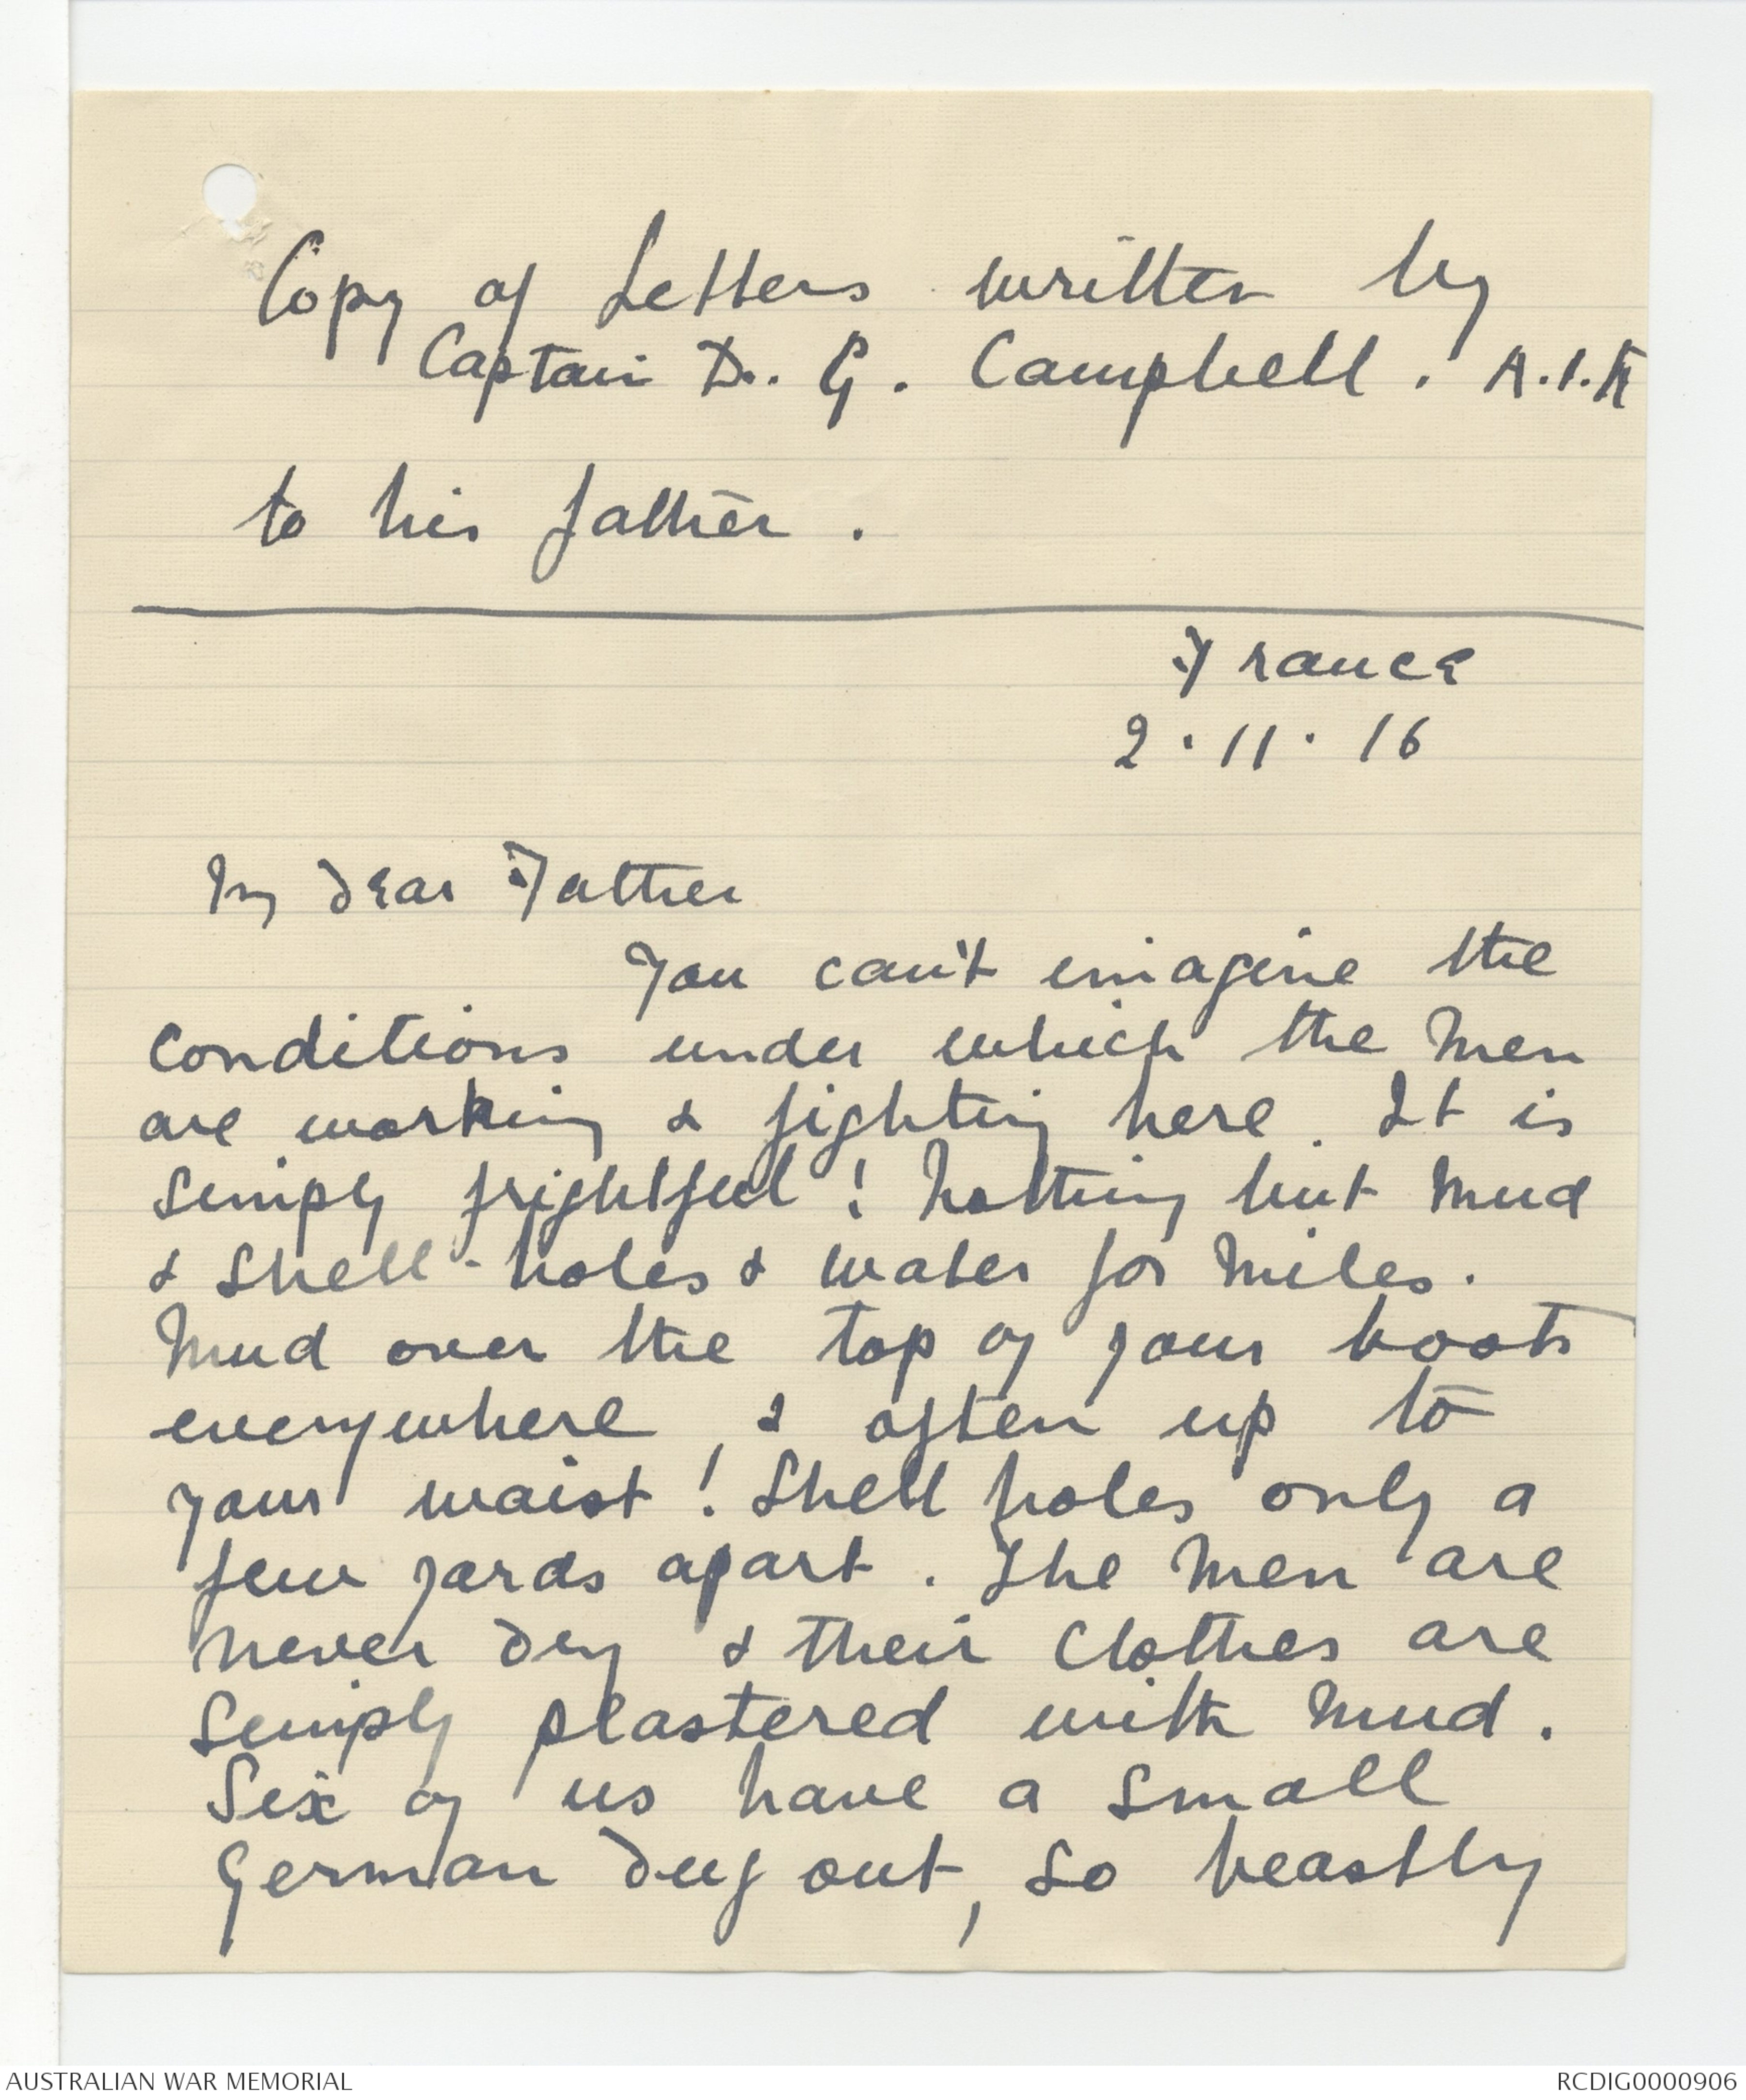 Copy of Letters written by
Captain D. G. Campbell. A.I.F
to his father.
France
2.11.16
My dear Father
You can't imagine the
conditions under which the men
are working & fighting here. It is
simply frightful! Nothing but mud
& shell-holes & water for miles.
Mud over the top of your boots
everywhere, & often up to
your waist! Shell holes only a
few yards apart. The men are
never dry & their clothes are
simply plastered with mud.
Six of us have a small
German dug out, so beastly
AUSTRALIAN WAR MEMORIAL
RCDIG0000906